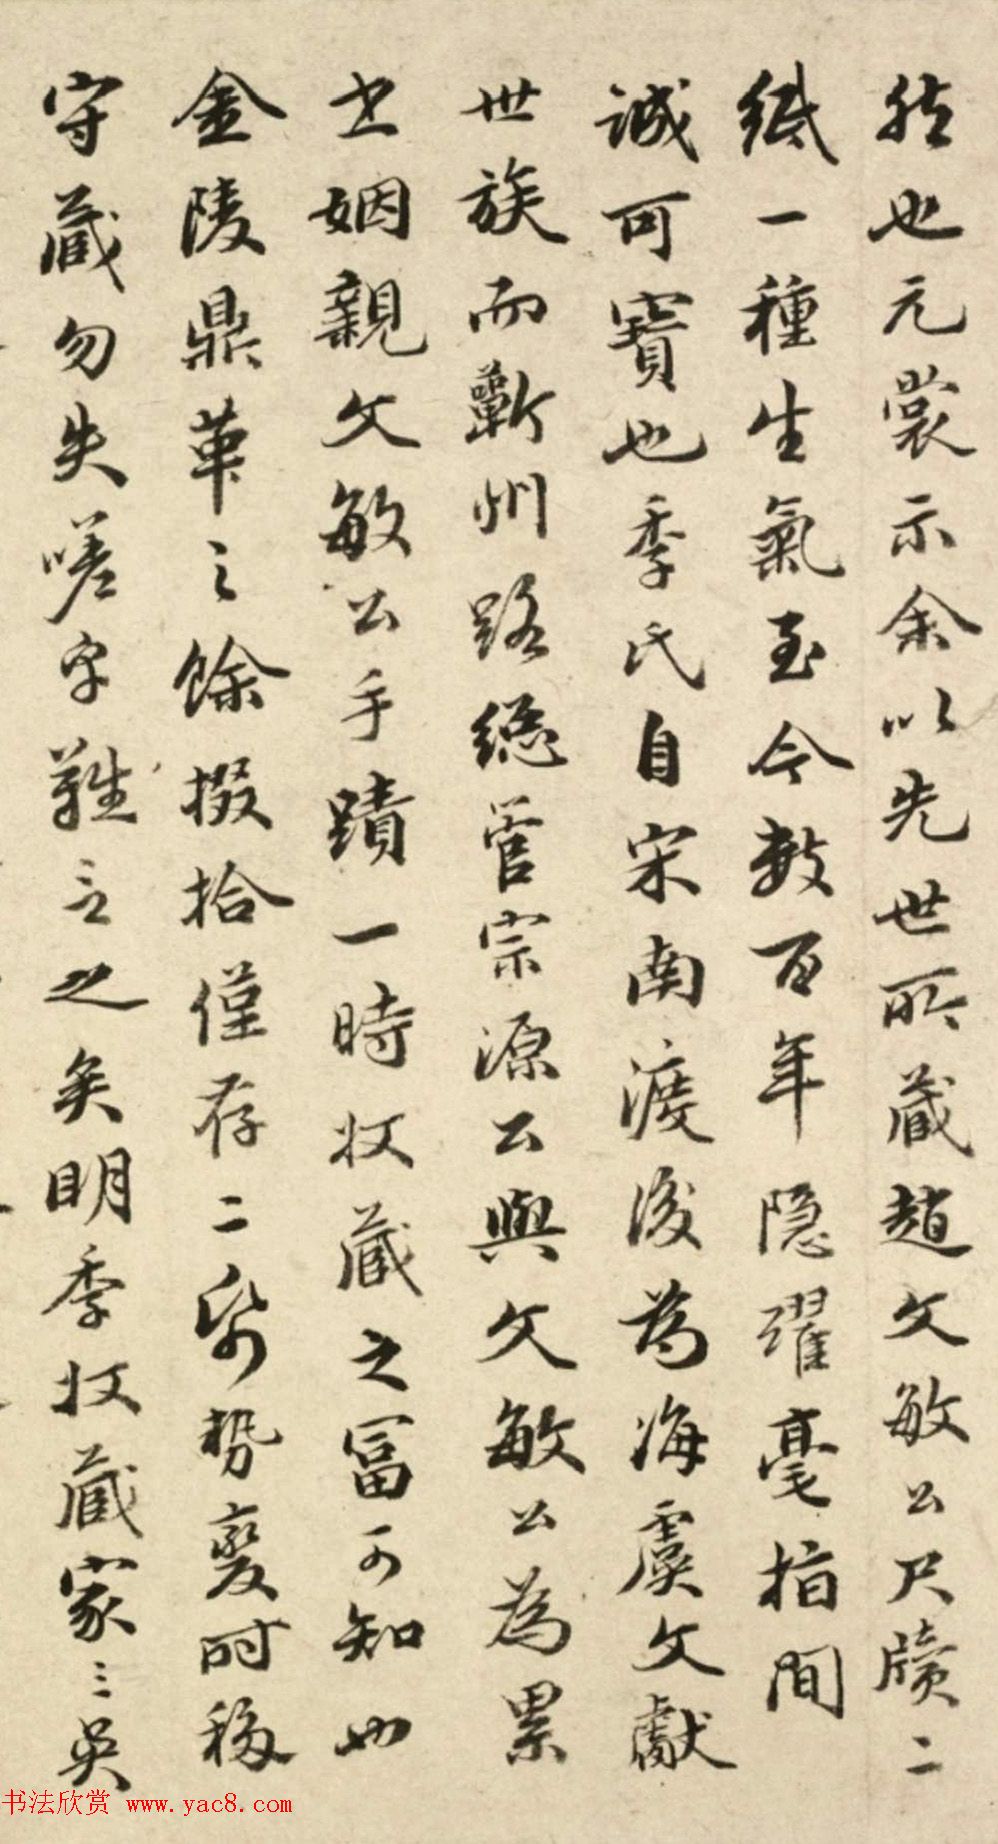 然也元裳示余以先世所藏趙文敏公尺牘二
紙一種生氣至今數百年隱躍毫指間
誠可寶也季氏自宋南渡後為海虞文獻
世族而蘄州路總管宗源公與文敏公為累
世姻親文敏公手蹟一時收藏之富可知也
金陵鼎革之餘掇拾僅存二紙勢變時移
守藏勿失嗟乎難言之矣明季收藏家三吳
书法欣赏 www.yac8.com